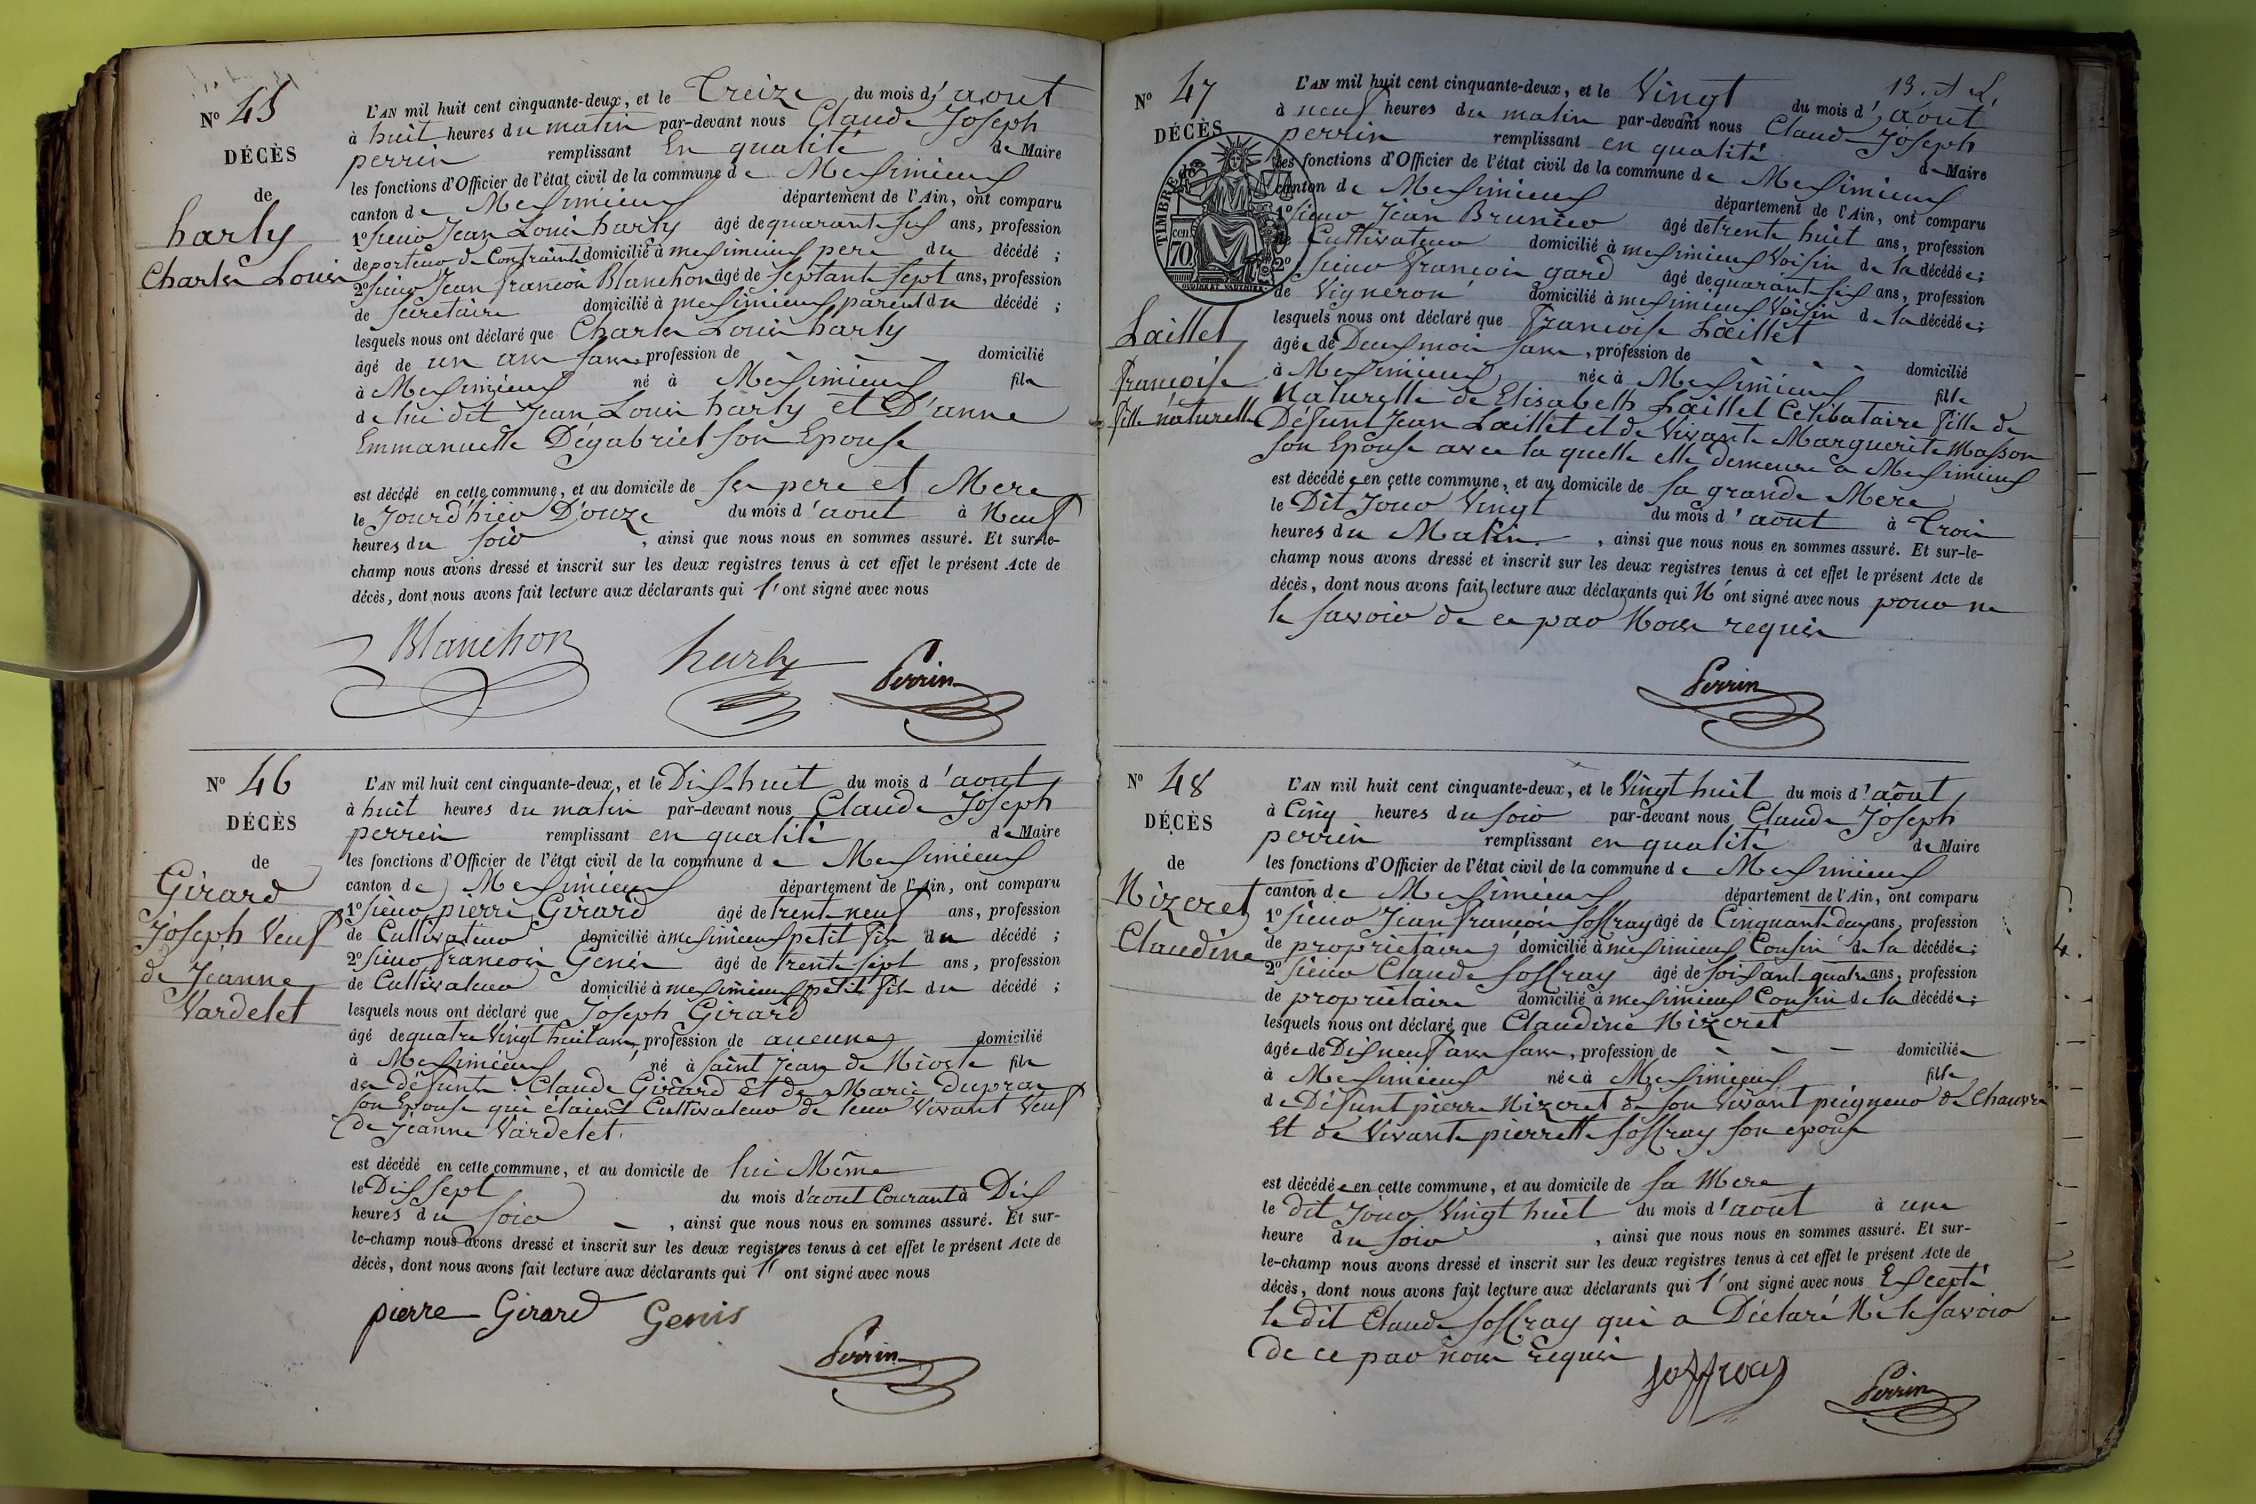 N° 45
DÉCÈS
de
harly
Charles Louis
L'AN mil huit cent cinquante-deux, et le Treize du mois d'aout
à huit heures du matin par-devant nous Claude Joseph
perrin remplissant En qualité de Maire
les fonctions d'Officier de l'état civil de la commune de Meximieux
canton de Meximieux département de l'Ain, ont comparu
1° sieur Jean Louis harly âgé de quarante six ans, profession
de porteur de Contrainte domicilié à meximieux pere du décédé ;
2° sieur Jean françois Blanchon âgé de septante sept ans, profession
de secretaire domicilié à meximieux parent du décédé ;
lesquels nous ont déclaré que Charles Louis harly
âgé de un ans sans profession de - - - domicilié
à Meximieux né à Meximieux fils
de lui dit Jean Louis harly et D'anne
Emmanuelle Dégabriel son Epouse
est décédé en cette commune, et au domicile de ses pere et Mere
le Jourd'hier Douze du mois d'aout à Neuf
heures du soir , ainsi que nous nous en sommes assuré. Et sur-le-
champ nous avons dressé et inscrit sur les deux registres tenus à cet effet le présent Acte de
décès, dont nous avons fait lecture aux déclarants qui l'ont signé avec nous
Blanchon harly Perrin
N° 46
DÉCÈS
de
Girard
Joseph Veuf
de Jeanne
Vardelet
L'AN mil huit cent cinquante-deux, et le Dix-huit du mois d'aout
à huit heures du matin par-devant nous Claude Joseph
perrin remplissant en qualité de Maire
les fonctions d'Officier de l'état civil de la commune de Meximieux
canton de Meximieux département de l'Ain, ont comparu
1° sieur pierre Girard âgé de trente neuf ans, profession
de Cultivateur domicilié à meximieux petit fils du décédé ;
2° sieur françois Genis âgé de trente sept ans, profession
de Cultivateur domicilié à meximieux petit fils du décédé ;
lesquels nous ont déclaré que Joseph Girard
âgé de quatre Vingt huit ans, profession de aucune domicilié
à Meximieux né à Saint Jean de Nioste fils
des défunts Claude Girard Et de Marie dupras
son Epouse qui étaient Cultivateur de leur Vivant Veuf
de Jeanne Vardelet.
est décédé en cette commune, et au domicile de lui Même
le Dix sept du mois d'aout Courant à Dix
heures du soir - , ainsi que nous nous en sommes assuré. Et sur-
le-champ nous avons dressé et inscrit sur les deux registres tenus à cet effet le présent Acte de
décès, dont nous avons fait lecture aux déclarants qui l'ont signé avec nous
pierre Girard Genis
Perrin
N° 47
DÉCÈS
TIMBRE
70 cen
Laillet
françoise
fille naturelle
L'AN mil huit cent cinquante-deux, et le Vingt du mois d'aout
à neuf heures du matin par-devant nous Claude Joseph
perrin remplissant en qualité de Maire
les fonctions d'Officier de l'état civil de la commune de Meximieux
canton de Meximieux département de l'Ain, ont comparu
1° sieur Jean Brunier âgé de trente huit ans, profession
de Cultivateur domicilié à meximieux Voisin de la décédée ;
2° sieur françois gard âgé de quarante six ans, profession
de Vigneron domicilié à meximieux Voisin de la décédée ;
lesquels nous ont déclaré que françoise Laillet
âgée de Deux mois sans, profession de - - - domicilié
à Meximieux née à Meximieux fille
Naturelle de Elisabeth Laillet Célibataire fille de
Défunt Jean Laillet et de Vivante Marguerite Masson
son Epouse avec la quelle elle demeure a Meximieux
est décédée en cette commune, et au domicile de sa grande Mere
le Dit Jour Vingt du mois d'aout à Trois
heures du Matin , ainsi que nous nous en sommes assuré. Et sur-le-
champ nous avons dressé et inscrit sur les deux registres tenus à cet effet le présent Acte de
décès, dont nous avons fait lecture aux déclarants qui N'ont signé avec nous pour ne
le savoir de ce par Nous requis
Perrin
N° 48
DÉCÈS
de
Nizeret
Claudine
L'AN mil huit cent cinquante-deux, et le Vingt huit du mois d'aout
à Cinq heures du soir par-devant nous Claude Joseph
perrin remplissant en qualité de Maire
les fonctions d'Officier de l'état civil de la commune de Meximieux
canton de Meximieux département de l'Ain, ont comparu
1° sieur Jean françois Joffray âgé de Cinquante deux ans, profession
de proprietaire domicilié à meximieux Cousin de la décédée ;
2° sieur Claude Joffray âgé de soixante quatre ans, profession
de proprietaire domicilié à meximieux Cousin de la décédée ;
lesquels nous ont déclaré que Claudine Nizeret
âgée de Dix neuf ans sans, profession de - - - domiciliée
à Meximieux née à Meximieux fille
de Défunt pierre Nizeret de son Vivant peigneur de Chanvre
Et de Vivante pierrette Joffray son epouse
est décédée en cette commune, et au domicile de sa Mere
le dit Jour Vingt huit du mois d'aout à une
heure du soir , ainsi que nous nous en sommes assuré. Et sur-
le-champ nous avons dressé et inscrit sur les deux registres tenus à cet effet le présent Acte de
décès, dont nous avons fait lecture aux déclarants qui l'ont signé avec nous Excepté
le dit Claude Joffray qui a Déclaré Ne le savoir
de ce par nous requis
Joffray Perrin